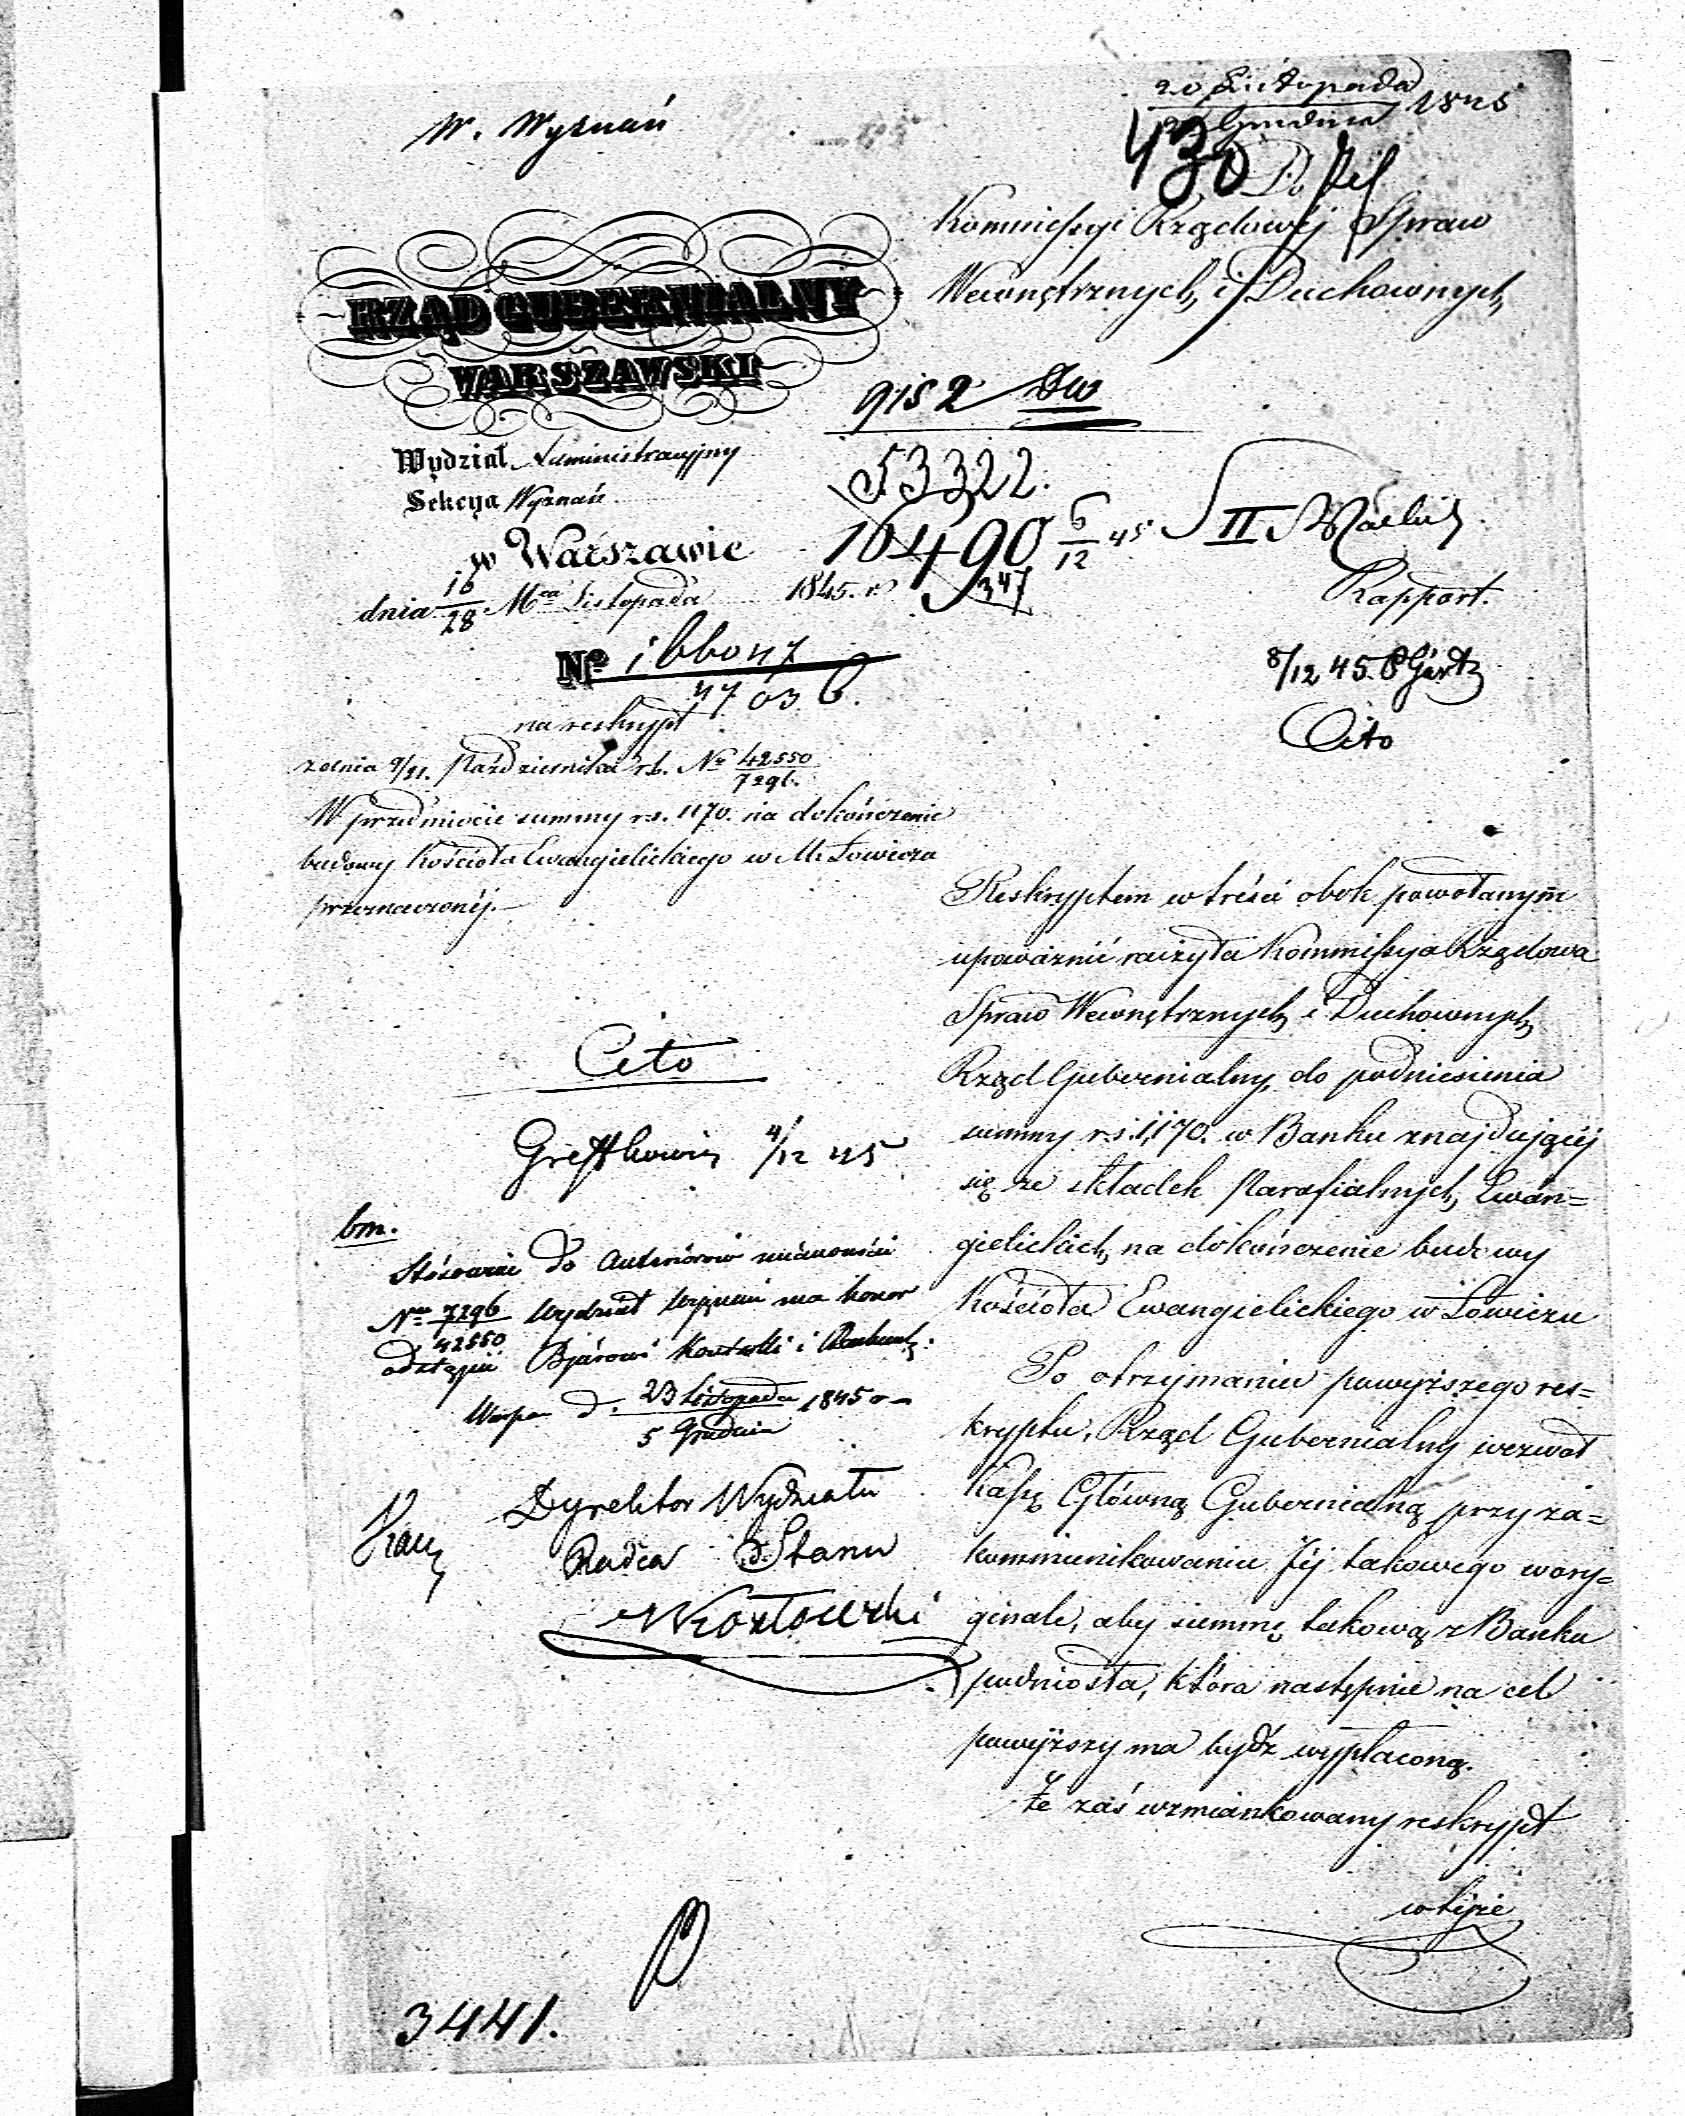 W. Wyznań
20 Listopada
2 Grudnia 1845
430
Do
Kommissyi Rządowej Spraw
Wewnętrznych i Duchownych
RZĄD GUBERNIALNY
WARSZAWSKI
9152
53322.
Wydział Administracyjny
Sekcya Wyznań
10490 6/12 45
II
347
w Warszawie
dnia 16/28 Mca Listopada 1845. r.
Rapport.
No 166047
47036.
8/12 45
Cito
na reskrypt
z dnia 9/21. Października r.b. No 42550/7296.
W przedmiocie summy rs. 1170. na dokończenie
budowy Kościoła Ewangielickiego w M. Łowiczu
przeznaczonéj.—
Cito
4/12 45
bm.
Stósownie do
No 7296/42550 Wydział Wyznań ma honor
odstąpić Kontrolli i
d. 23 Listopada/5 Grudnia 1845 r—
Dyrektor Wydziału
Radca Stanu
Kozłowski
Reskryptem w treści obok powołanym
upoważnić raczyła Kommissya Rządowa
Spraw Wewnętrznych i Duchownych
Rząd Gubernialny, do podniesienia
summy rs. 1,170. w Banku znajdującéj
się ze składek Parafialnych, Ewan=
gielickich, na dokończenie budowy
Kościoła Ewangielickiego w Łowiczu
Po otrzymaniu powyższego res=
kryptu, Rząd Gubernialny wezwał
Kassę Główną Gubernialną przy za=
kommunikowaniu Jéj takowego w ory=
ginale, aby summę takową z Banku
podniosła, która następnie na cel
powyższy ma bydź wypłaconą.
Że zaś wzmiankowany reskrypt
w téjże
3441.